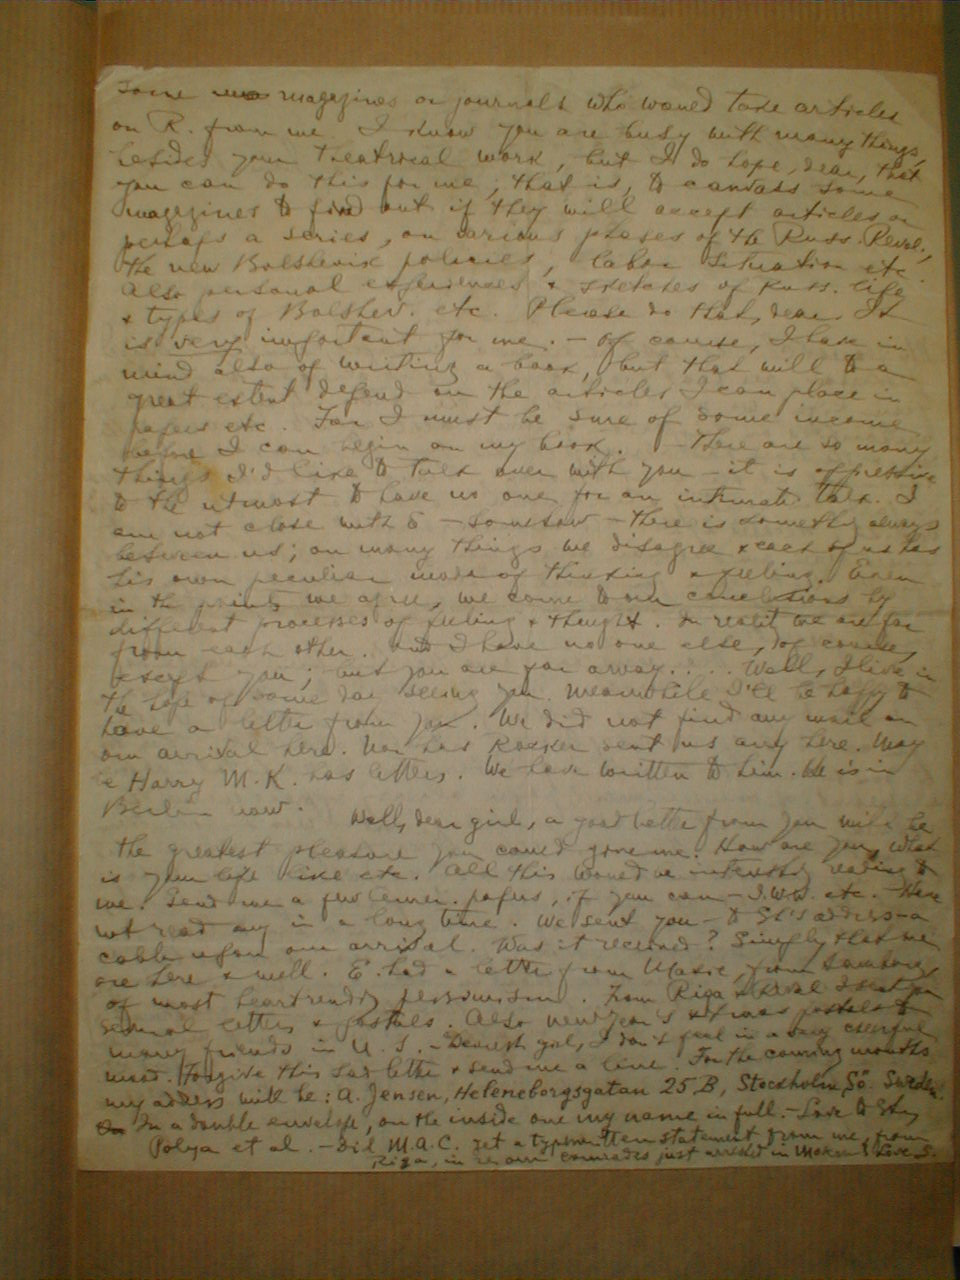 some magazines or journals who would take articles
on R. from me. I know you are busy with many things,
besides your theatrical work, but I do hope, dear, that
you can do this for me, that is, to canvass some
magazines to find out if they will accept articles or
perhaps a series, on various phases of the Russ. Revol.,
the new Bolshevik policies, labor situation etc.
Also personal experiences & sketches of Russ. life
& types of Bolshev. etc. Please do that, dear. It
is very important for me. — Of course, I have in
mind also of writing a book, but that will to a
great extent depend on the articles I can place in
papers etc. For I must be sure of some income
before I can begin on my book. — There are so many
things I'd like to talk over with you — it is oppressive
to the utmost to have no one for an intimate talk. I
am not close with E — somehow — there is something always
between us; on many things we disagree & each of us has
his own peculiar mode of thinking & feeling. Even
in the points we agree, we come to our conclusions by
different processes of feeling & thought. In realit we are far
from each other. And I have no one else, of course,
except you; but you are far away.... Well, I live in
the hope of some day seeing you. Meanwhile I'll be happy to
have a letter from you. We did not find any mail on
our arrival here. Nor has Rocker sent us any here. May
be Harry M.K. has letters. We have written to him. He is in
Berlin now. Well, dear girl, a good letter from you will be
the greatest pleasure you could give me. How are you, what
is your life like etc. All this would be intensely interesting to
me. Send me a few Amer. papers, if you can — I.W.W. etc. — Have
not read any in a long time. We sent you — to St's address — a
cable upon our arrival. Was it received? Simply that we
are here & well. E. had a letter from from
of most heartrending pessimism. From Riga & Reval I sent you
several letters & postals. Also New Year's & Xmas postals to
many friends in U.S. — Dearest girl, I don't feel in a very cheerful
mood. Forgive this sad letter & send me a line. For the coming months
my address will be: A. Jensen, Heleneborgsgatan 25 B, Stockholm, Sö. Sweden.
In a double envelope, on the inside one my name in full. — Love to
Polya et al. — Did M.A.C. get a typewritten statement from me, from
Riga, in re our comrades just arrested in Moscow? Love, S.